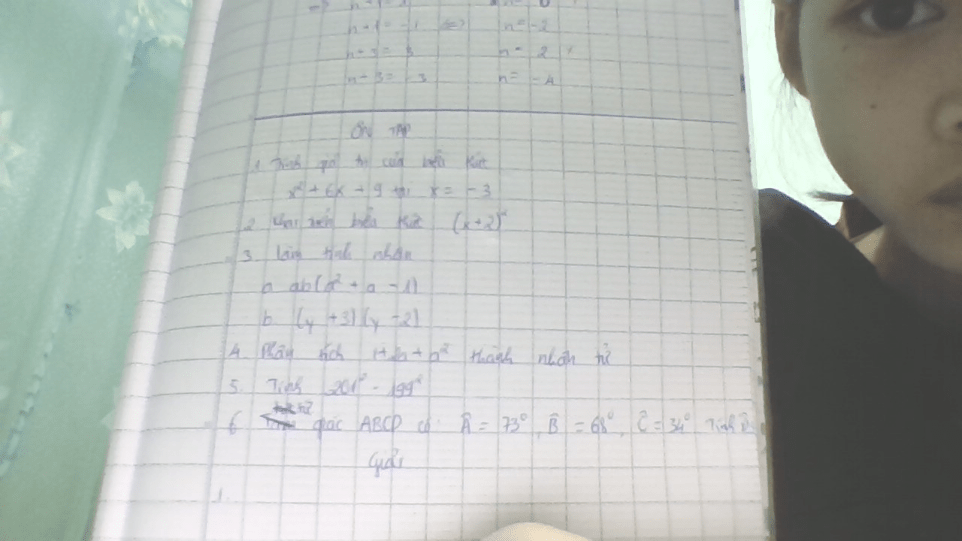 n+1 = -1 <=> n = -2
n+3 = 3 n = 2
n+3 = -3 n = -4
ÔN TẬP
1. Tính giá trị của biểu thức
x² + 6x + 9 tại x = -3
2 Khai triển biểu thức (x+2)²
3. Làm tính nhân
a ab(a² + a - 1)
b (y + 3)(y - 2)
4. Phân tích 1+2a+a² thành nhân tử
5. Tính 201² - 199²
6 tứ giác ABCD có: Â = 73°, B̂ = 68°, Ĉ = 34°. Tính D̂
Giải
1.